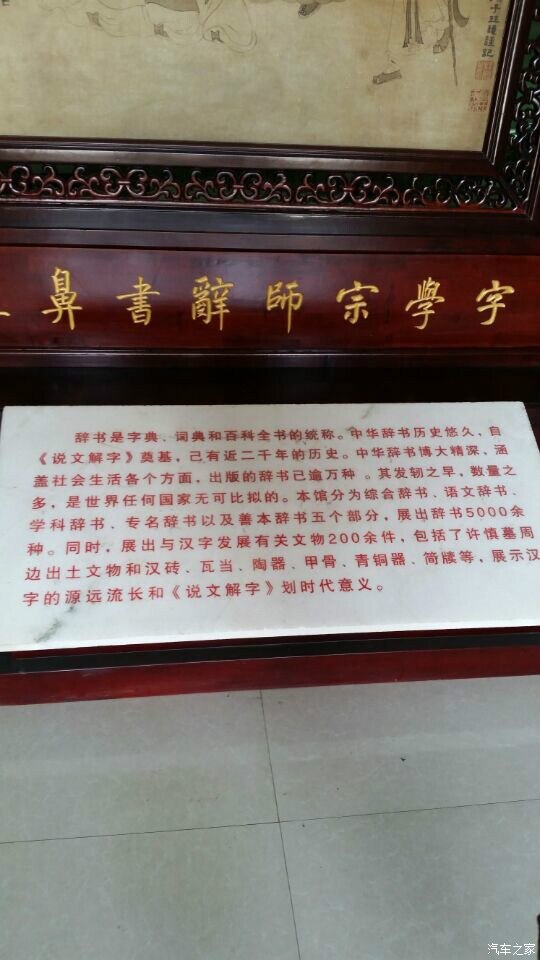 字學宗師辭書鼻
辞书是字典、词典和百科全书的统称。中华辞书历史悠久，自
《说文解字》奠基，己有近二千年的历史。中华辞书博大精深，涵
盖社会生活备个方面，出版的辞书已逾万种 。其发轫之早，数量之
多，是世界任何国家无可比拟的。本馆分为综合辞书、语文辞书、
学科辞书、专名辞书以及善本辞书五个部分，展出辞书5000余
种。同时，展出与汉字发展有关文物200余件，包括了许慎墓周
边出土文物和汉砖、瓦当、陶器、甲骨、青铜器、简牍等，展示汉
字的源远流长和《说文解字》划时代意义。
汽车之家